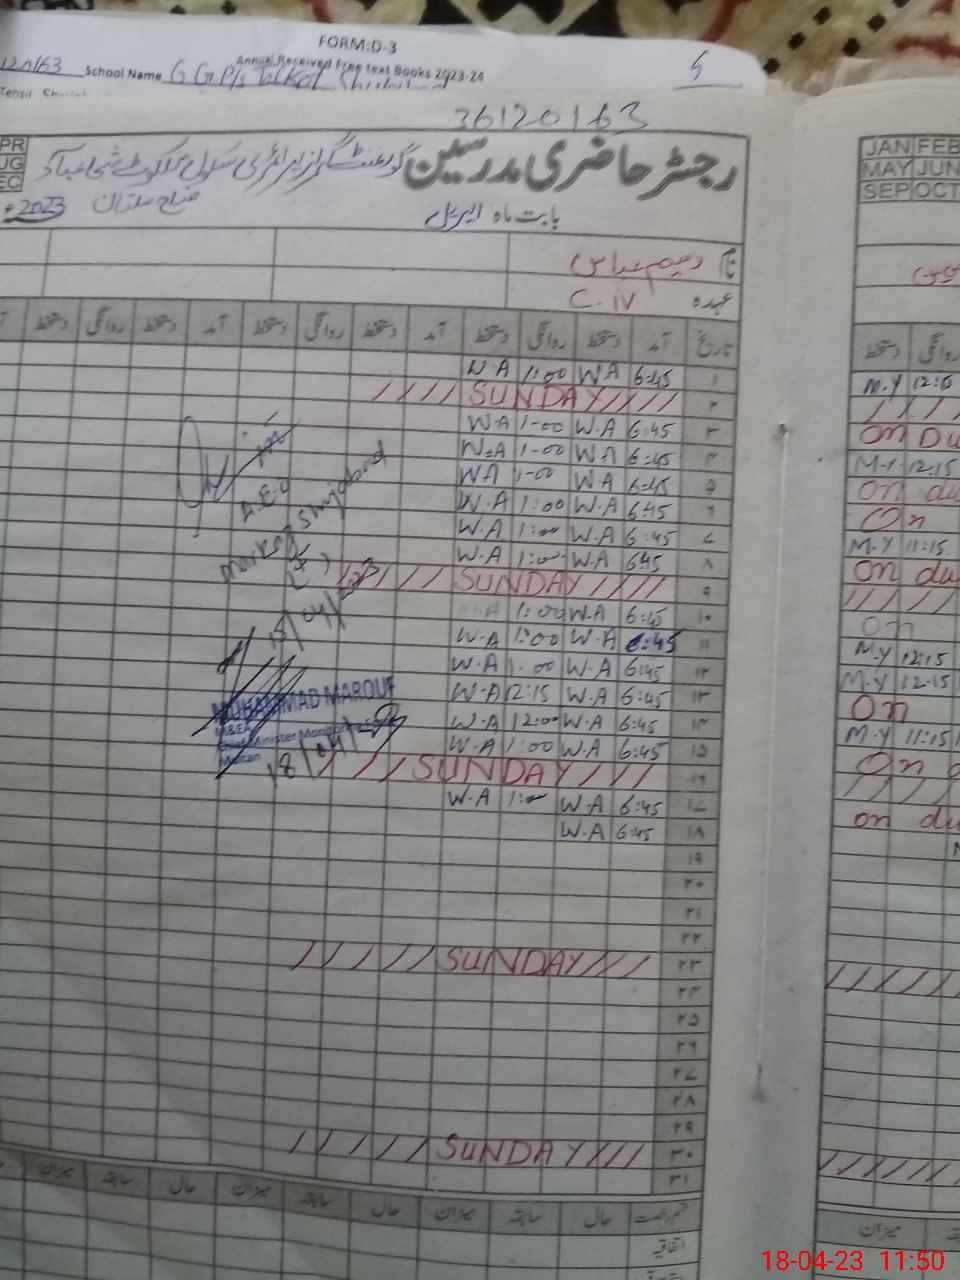 FORM:D-3
Annual Received Free text Books 2023-24
School Name G G P/S
5
36120163
رجسٹر حاضری مدرسین گورنمنٹ گرلز پرائمری سکول شجاعباد
ضلع ملتان
بابت ماہ اپریل 2023
نام وسیم عباس
عہدہ C.IV
تاریخ آمد دستخط روانگی دستخط آمد دستخط روانگی دستخط آمد دستخط روانگی دستخط
۱ 6:45 W.A 1:00 W.A
۲ SUNDAY
۳ 6:45 W.A 1-00 W.A
۴ 6:45 W.A 1-00 W.A
۵ 6:45 W.A 1-00 W.A
۶ 6:45 W.A 1:00 W.A
۷ 6:45 W.A 1:00 W.A
۸ 6:45 W.A 1:00 W.A
۹ SUNDAY
۱۰ 6:45 W.A 1:00 A
۱۱ 6:45 W.A 1:00 W.A
۱۲ 6:45 W.A 1:00 W.A
۱۳ 6:45 W.A 12:15 W.A
۱۴ 6:45 W.A 12:00 W.A
۱۵ 6:45 W.A 1:00 W.A
۱۶ SUNDAY
۱۷ 6:45 W.A 1:00 W.A
۱۸ 6:45 W.A
۱۹
۲۰
۲۱
۲۲
۲۳ SUNDAY
۲۴
۲۵
۲۶
۲۷
۲۸
۲۹
۳۰ SUNDAY
۳۱
A.E.O
Markaz Shujabad
15/04/2023
MUHAMMAD MAROUF
M&EA
Chief Minister Monitoring
Multan
18/04/23
حال سابقہ میزان حال سابقہ میزان حال سابقہ میزان
اتفاقیہ
JAN FEB
MAY JUN
SEP OCT
دستخط روانگی
M.Y 12:15
on Du
M.Y 12:15
on du
On
M.Y 11:15
on du
On
M.Y 12:15
M.Y 12:15
On
M.Y 11:15
On d
on du
میزان
18-04-23 11:50